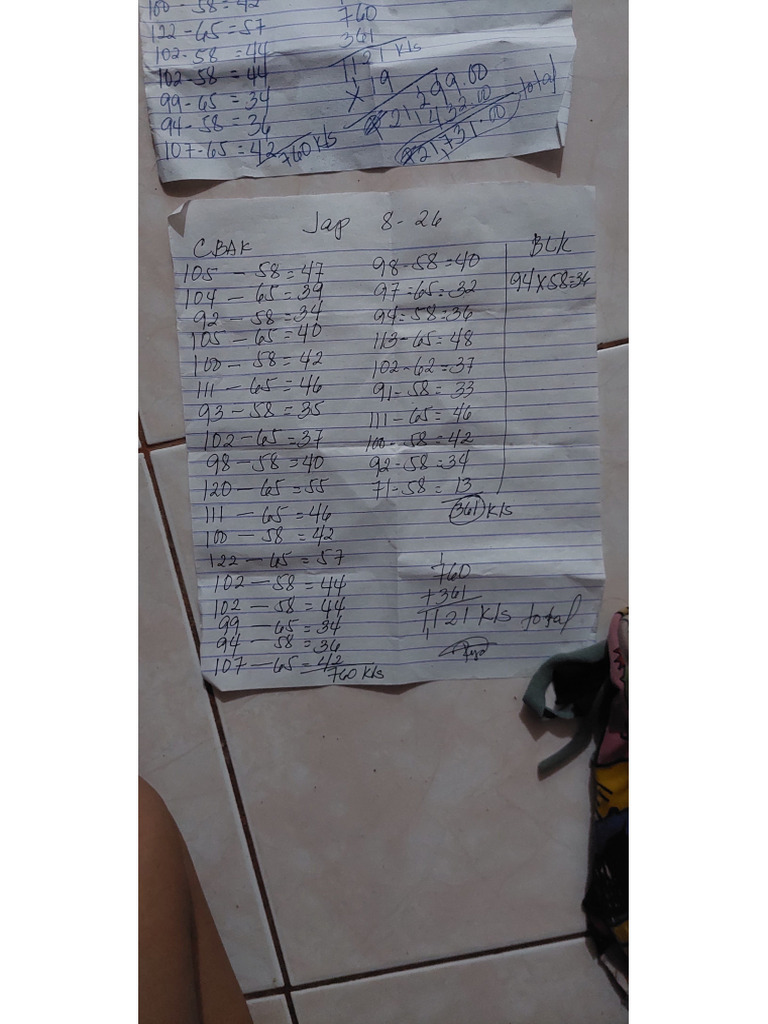 100 - 58 = 42
122 - 65 = 57
102 - 58 = 44
102 - 58 = 44
99 - 65 = 34
94 - 58 = 36
107 - 65 = 42
760 Kls
760
361
1121 Kls
X 19
21,299.00
432.00
21,731.00 total
Jap 8-26
CBAK
105 - 58 = 47
104 - 65 = 39
92 - 58 = 34
105 - 65 = 40
100 - 58 = 42
111 - 65 = 46
93 - 58 = 35
102 - 65 = 37
98 - 58 = 40
120 - 65 = 55
111 - 65 = 46
100 - 58 = 42
122 - 65 = 57
102 - 58 = 44
102 - 58 = 44
99 - 65 = 34
94 - 58 = 36
107 - 65 = 42
760 Kls
98 - 58 = 40
97 = 65 = 32
94 = 58 = 36
113 - 65 = 48
102 - 62 = 37
91 - 58 = 33
111 - 65 = 46
100 - 58 = 42
92 - 58 = 34
71 - 58 = 13
361 Kls
1
760
+361
1,121 Kls total
BLK
94 X 58 = 36